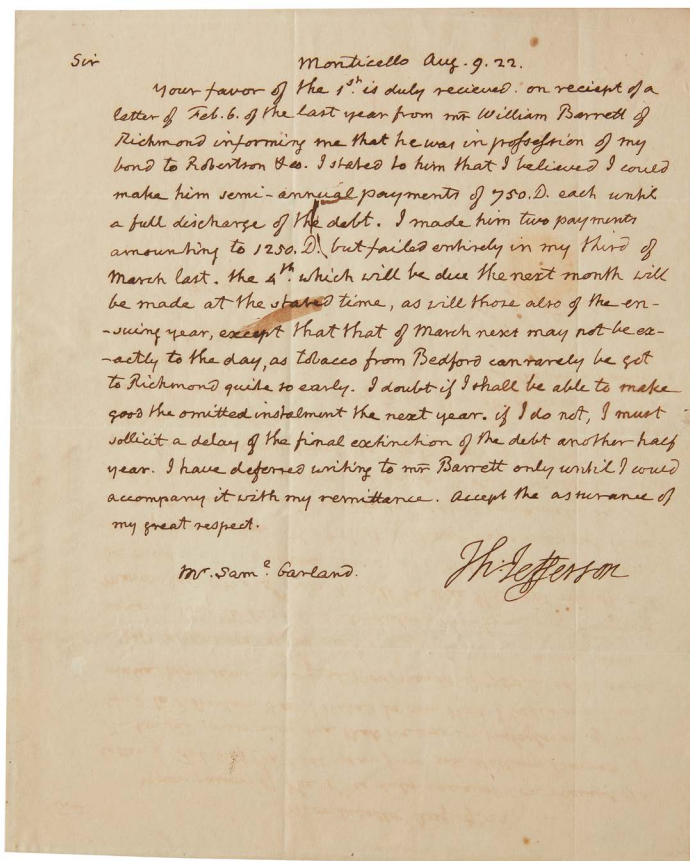 Sir Monticello Aug. 9. 22.
Your favor of the 1st. is duly recieved. on reciept of a
letter of Feb. 6. of the last year from mr William Barrett of
Richmond informing me that he was in possession of my
bond to Robertson & co. I stated to him that I believed I could
make him semi-annual payments of 750. D. each until
a full discharge of the debt. I made him two payments
amounting to 1250. D. but failed entirely in my third of
March last. the 4th. which will be due the next month will
be made at the stated time, as will those also of the en-
-suing year, except that that of March next may not be ex-
-actly to the day, as tobacco from Bedford can rarely be got
to Richmond quite so early. I doubt if I shall be able to make
good the omitted instalment the next year. if I do not, I must
sollicit a delay of the final extinction of the debt another half
year. I have deferred writing to mr Barrett only until I could
accompany it with my remittance. Accept the assurance of
my great respect.
Th: Jefferson
Mr. Saml. Garland.